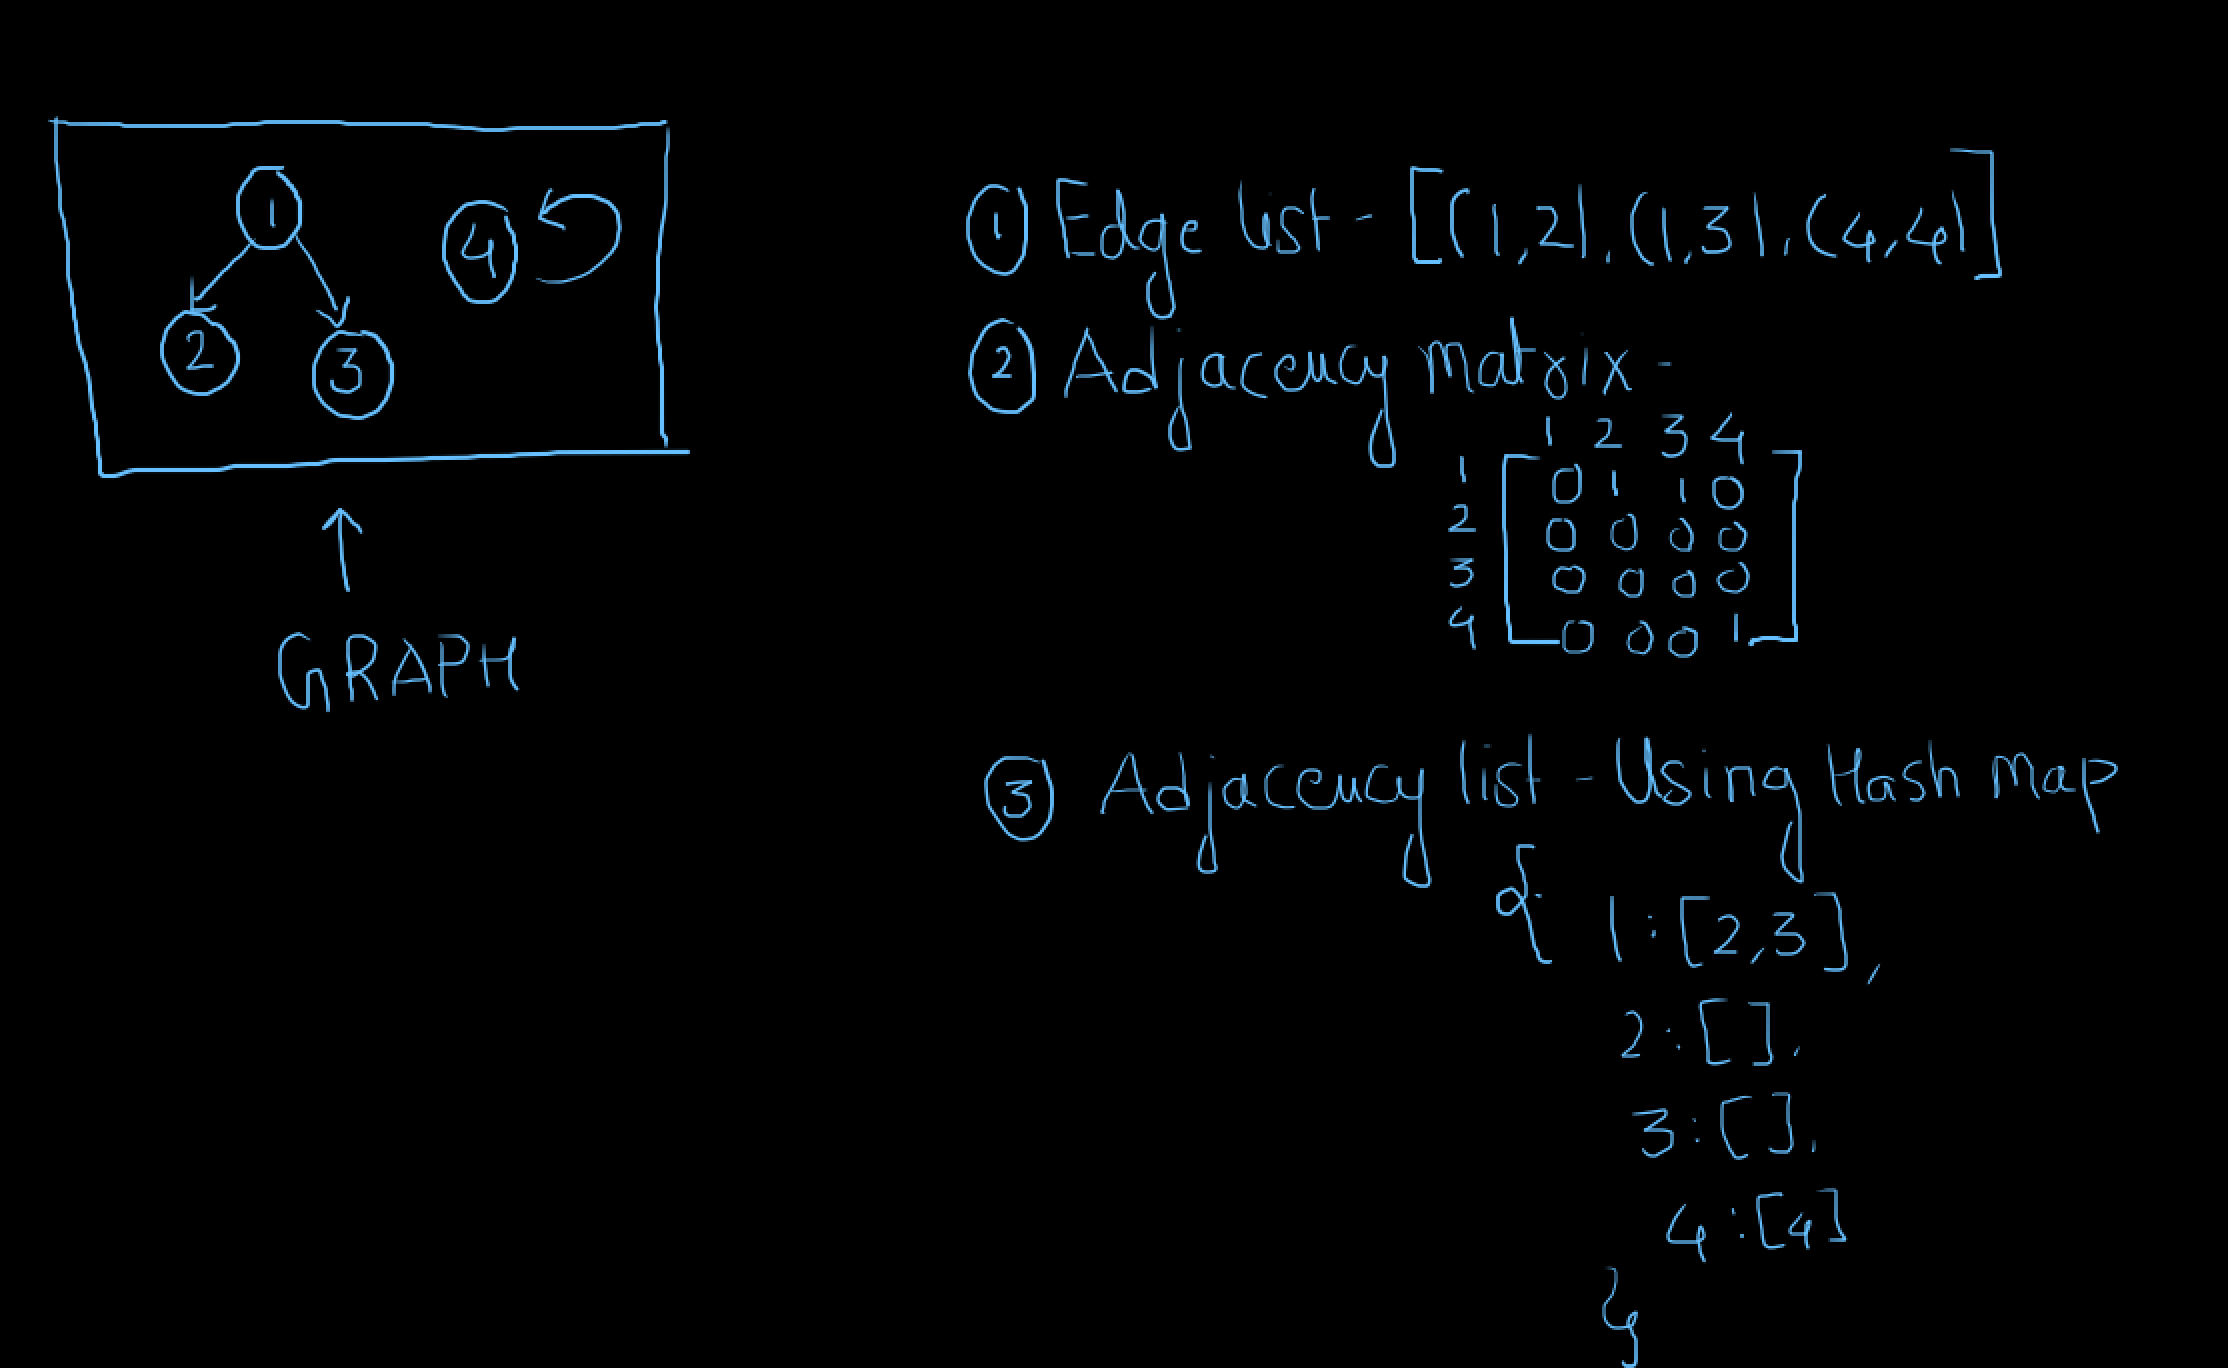 1
4
2
3
GRAPH
① Edge list - [(1,2), (1,3), (4,4)]
② Adjacency matrix -
1 2 3 4
1 [ 0 1 1 0 ]
2 0 0 0 0
3 0 0 0 0
4 0 0 0 1
③ Adjacency list - Using Hash map
{ 1 : [2,3],
2 : [ ],
3 : [ ],
4 : [4]
}